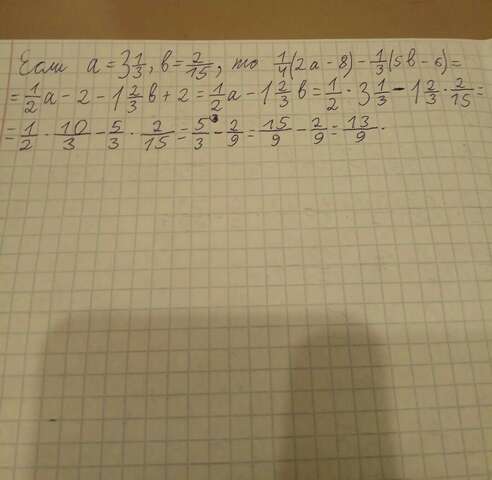 Если a = 3 1/3, b = 2/15, то 1/4(2a - 8) - 1/3(5b - 6) =
= 1/2 a - 2 - 1 2/3 b + 2 = 1/2 a - 1 2/3 b = 1/2 · 3 1/3 - 1 2/3 · 2/15 =
= 1/2 · 10/3 - 5/3 · 2/15 = 5/3 - 2/9 = 15/9 - 2/9 = 13/9.